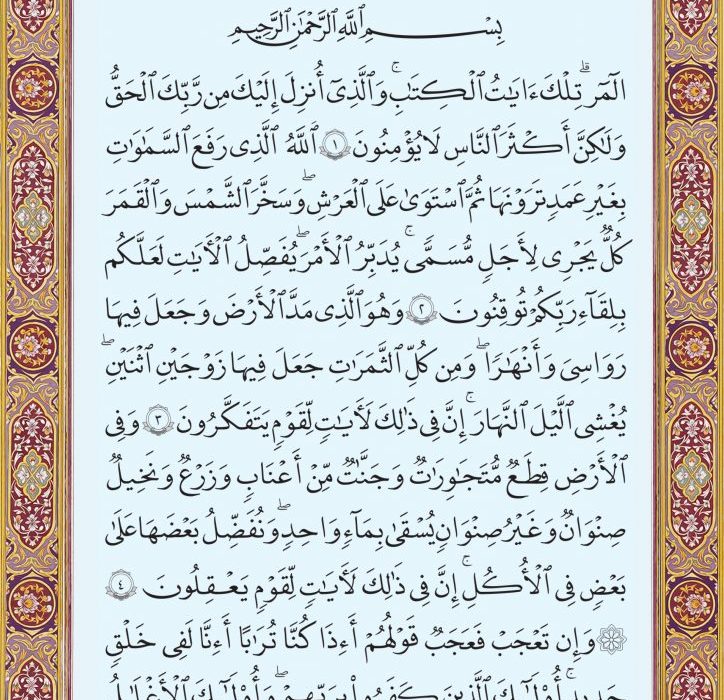 بِسْمِ ٱللَّهِ ٱلرَّحْمَٰنِ ٱلرَّحِيمِ
الٓمٓر ۚ تِلْكَ ءَايَٰتُ ٱلْكِتَٰبِ ۗ وَٱلَّذِىٓ أُنزِلَ إِلَيْكَ مِن رَّبِّكَ ٱلْحَقُّ
وَلَٰكِنَّ أَكْثَرَ ٱلنَّاسِ لَا يُؤْمِنُونَ ١ ٱللَّهُ ٱلَّذِى رَفَعَ ٱلسَّمَٰوَٰتِ
بِغَيْرِ عَمَدٍ تَرَوْنَهَا ۖ ثُمَّ ٱسْتَوَىٰ عَلَى ٱلْعَرْشِ ۖ وَسَخَّرَ ٱلشَّمْسَ وَٱلْقَمَرَ
كُلٌّ يَجْرِى لِأَجَلٍ مُّسَمًّى ۚ يُدَبِّرُ ٱلْأَمْرَ يُفَصِّلُ ٱلْأَيَٰتِ لَعَلَّكُم
بِلِقَآءِ رَبِّكُمْ تُوقِنُونَ ٢ وَهُوَ ٱلَّذِى مَدَّ ٱلْأَرْضَ وَجَعَلَ فِيهَا
رَوَٰسِىَ وَأَنْهَٰرًا ۖ وَمِن كُلِّ ٱلثَّمَرَٰتِ جَعَلَ فِيهَا زَوْجَيْنِ ٱثْنَيْنِ ۖ
يُغْشِى ٱلَّيْلَ ٱلنَّهَارَ ۚ إِنَّ فِى ذَٰلِكَ لَأَيَٰتٍ لِّقَوْمٍ يَتَفَكَّرُونَ ٣ وَفِى
ٱلْأَرْضِ قِطَعٌ مُّتَجَٰوِرَٰتٌ وَجَنَّٰتٌ مِّنْ أَعْنَٰبٍ وَزَرْعٌ وَنَخِيلٌ
صِنْوَانٌ وَغَيْرُ صِنْوَانٍ يُسْقَىٰ بِمَآءٍ وَٰحِدٍ ۖ وَنُفَضِّلُ بَعْضَهَا عَلَىٰ
بَعْضٍ فِى ٱلْأُكُلِ ۚ إِنَّ فِى ذَٰلِكَ لَأَيَٰتٍ لِّقَوْمٍ يَعْقِلُونَ ٤
۞ وَإِن تَعْجَبْ فَعَجَبٌ قَوْلُهُمْ أَءِذَا كُنَّا تُرَٰبًا أَءِنَّا لَفِى خَلْقٍ
جَدِيدٍ ۗ أُو۟لَٰٓئِكَ ٱلَّذِينَ كَفَرُوا۟ بِرَبِّهِمْ ۖ وَأُو۟لَٰٓئِكَ ٱلْأَغْلَٰلُ